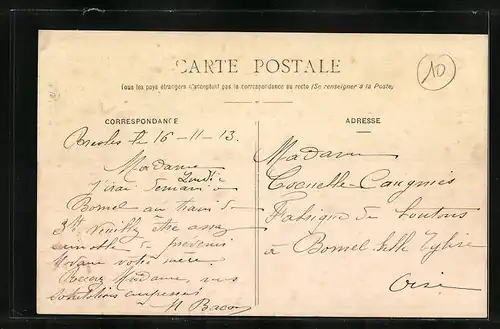 CARTE POSTALE
Tous les pays étrangers n'acceptent pas la correspondance au recto (Se renseigner à la Poste)
10
CORRESPONDANCE
Bresles le 16-11-13.
Madame
Lundi
J'irai demain à
Bornel au train de
3h Veuillez être assez
aimable de prévenir
Madame votre mère.
Recevez Madame, mes
salutations empressées
H Bacon
ADRESSE
Madame
Fabrique de boutons
à Bornel Belle Eglise
Oise